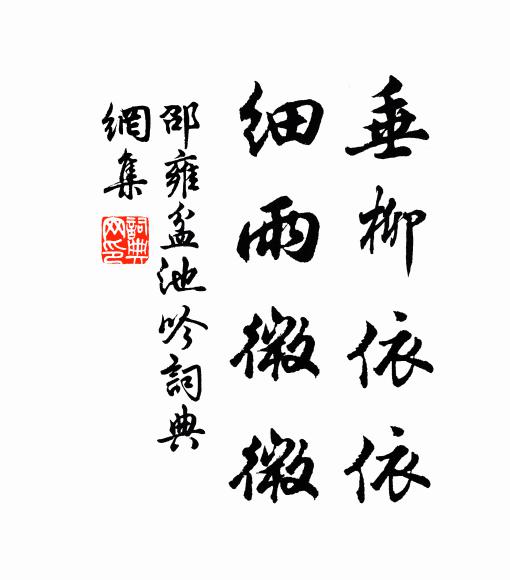 垂柳依依
細雨微微
邵雍盆池吟詞典
網集
詞典
网印